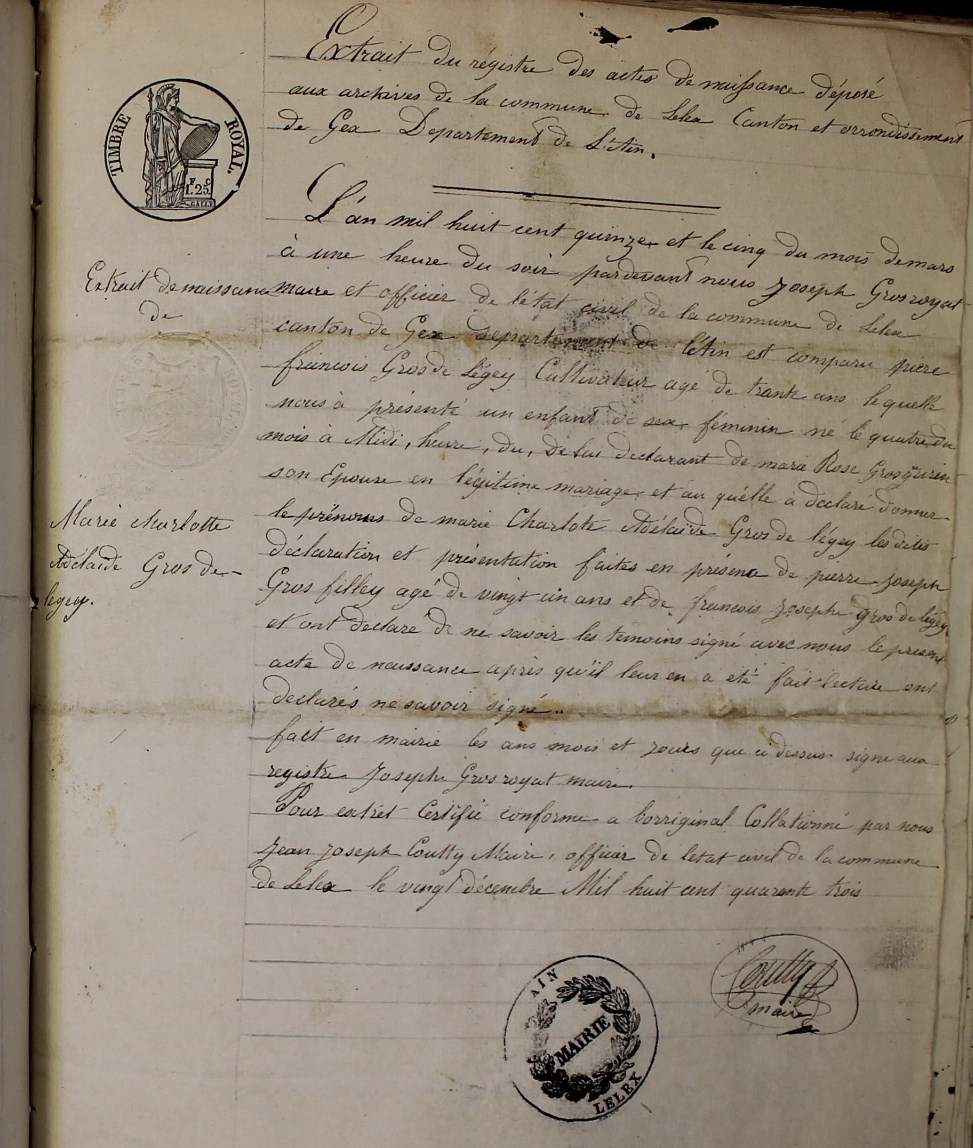 Extrait du régistre des actes de naissance déposé
aux archives de la commune de Lelex Canton et arrondissement
de Gex Departement de L'Ain.
TIMBRE ROYAL.
F. C
1.25
L'an mil huit cent quinze et le cinq du mois de mars
à une heure du soir pardevant nous Joseph Grosroyat
Extrait de naissance
de
maire et officier de l'état civil de la commune de Lelex
canton de Gex Departement de l'Ain est comparu piere
francois Gros de Légey Cultivateur agé de trante ans lequelle
nous à présenté un enfant de sex féminin né le quatre du
mois à Midi, heure, du, de lui declarant de marie Rose Grosgurin
son Epouse en légitime mariage et au quélle a declare donner
Marie charlotte
Adélaide Gros de
légey.
le prénoms de marie Charlote Adélaïde Gros de légey les dites
déclaration et présentation faites en présence de pierre Joseph
Gros filley agé de vingt cin ans et de françois Joseph gros de légey
et ont declare de ne savoir les temoins signé avec nous le present
acte de naissance après qu'il leur en a été fait lecture ont
declarés ne savoir signé..
fait en mairie les ans mois et jours que ci dessus signe aux
registre Joseph Grosroyat maire.
Pour extret Certifié conforme a l'orriginal Collationné par nous
Jean Joseph Coutty Maire, officier de letat civil de la commune
de Lelex le vingt décembre Mil huit cent quarente trois
Coutty
maire
AIN
MAIRIE
LELEX